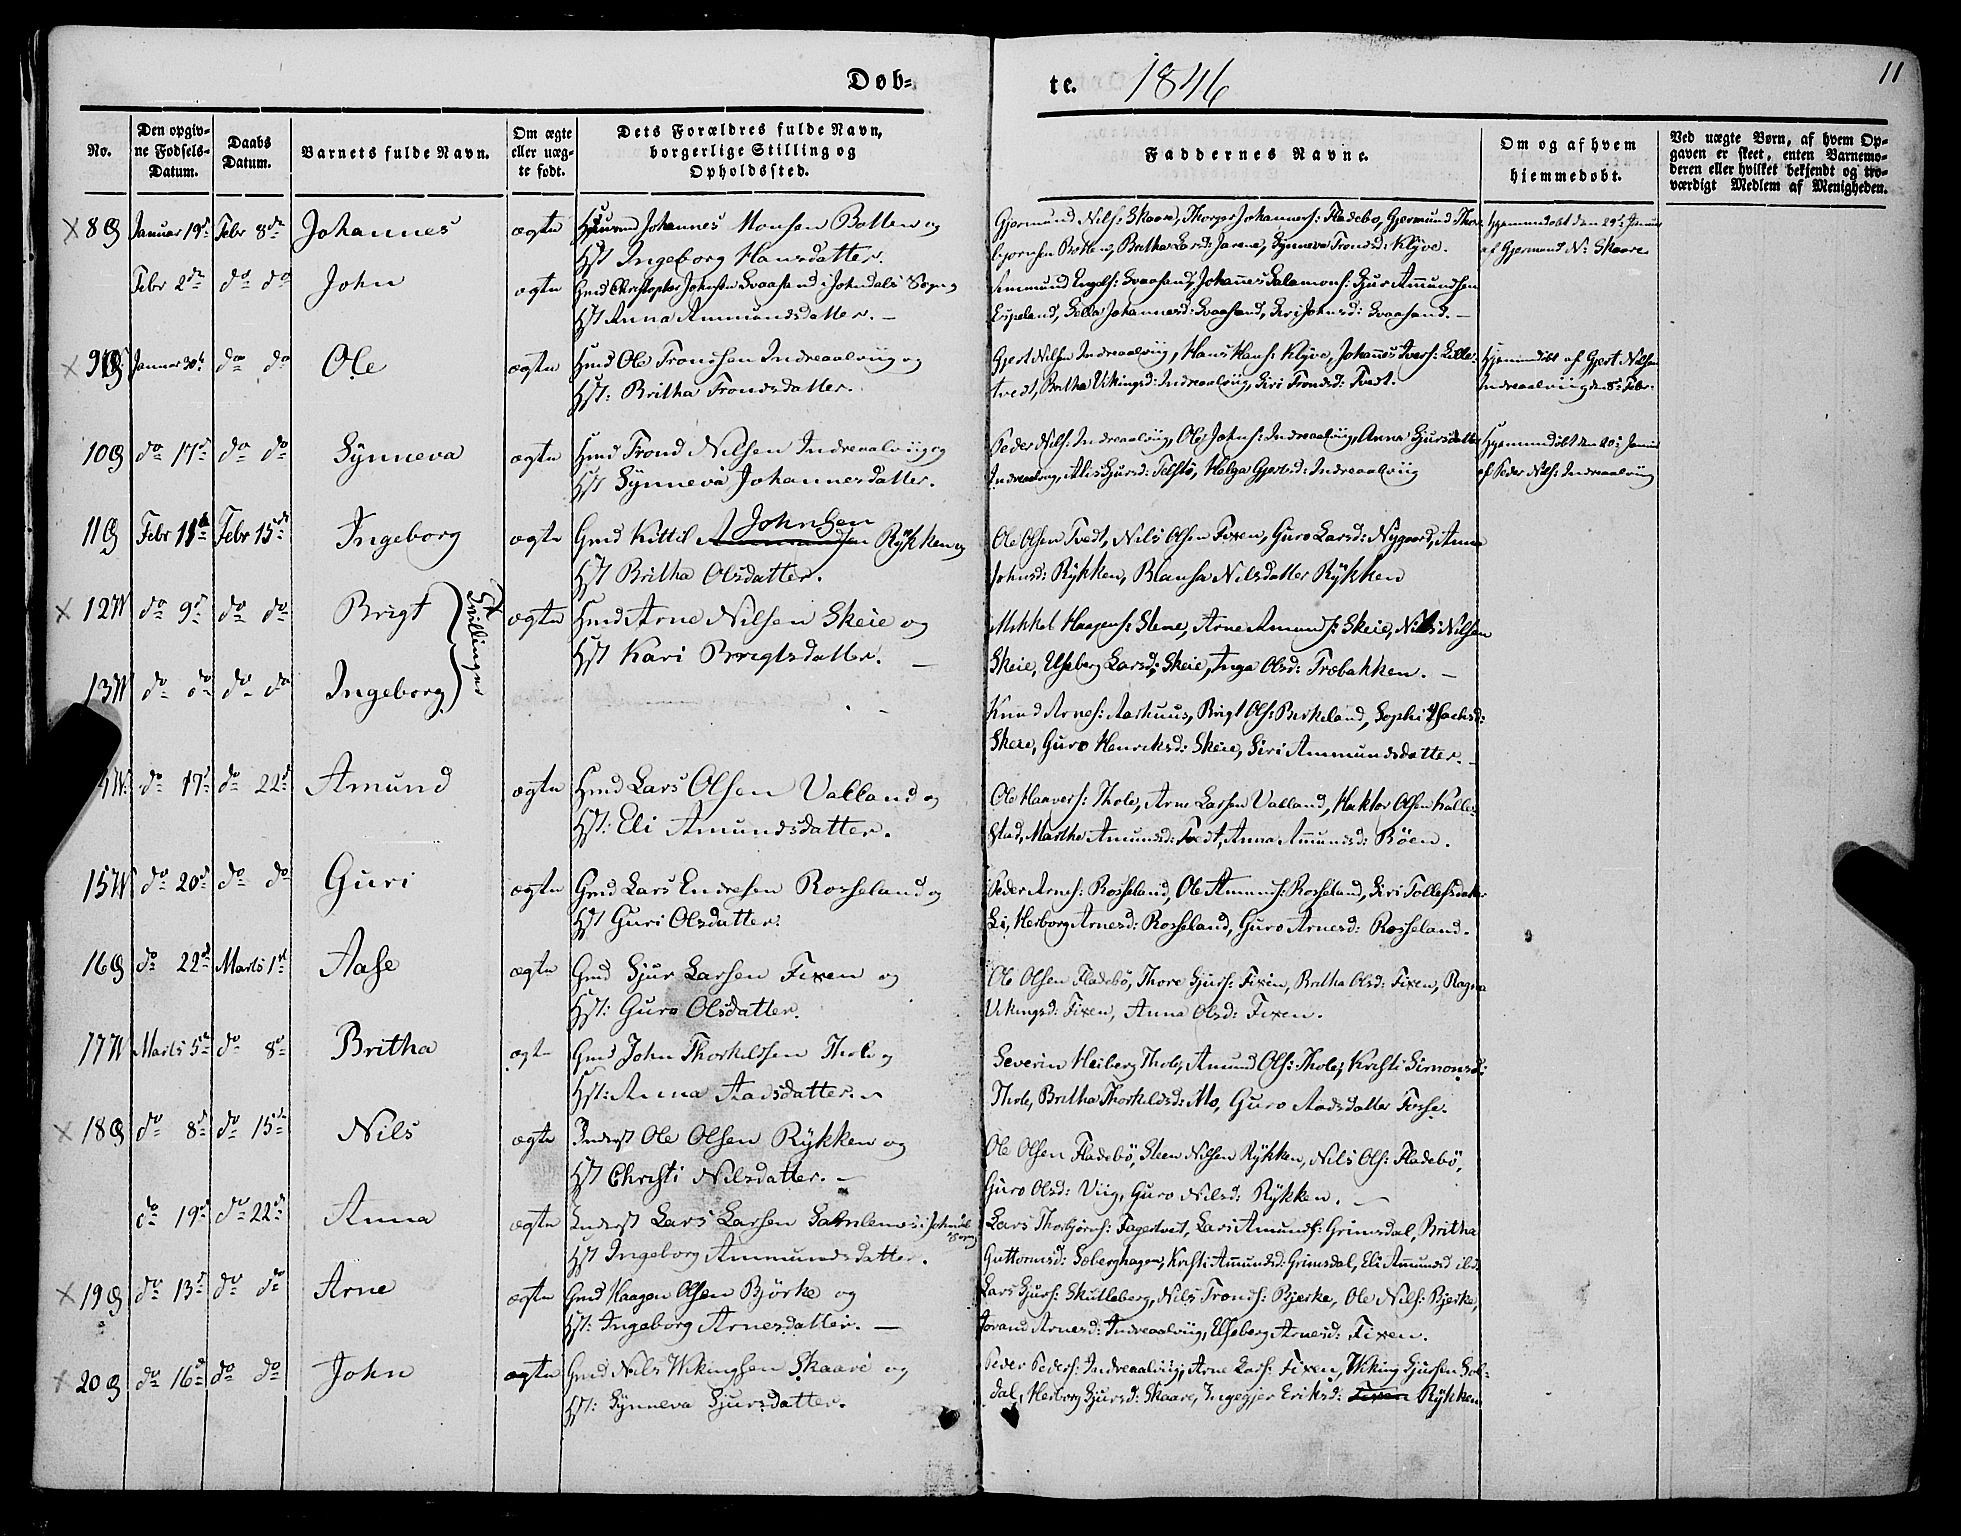 Døb-
te. 1846
11
No.
Den opgiv-
ne Fødsels-
Datum.
Daabs
Datum.
Barnets fulde Navn.
Om ægte
eller uæg-
te født.
Dets Forældres fulde Navn,
borgerlige Stilling og
Opholdssted.
Faddernes Navne.
Om og af hvem
hjemmedøbt.
Ved uægte Børn, af hvem Op-
gaven er skeet, enten Barnemo-
deren eller hvilket bekjendt og tro-
værdigt Medlem af Menigheden.
8 Januar 19d Febr 8de Johannes ægte Johannes Monsen Botten og
Hst Ingeborg Hansdatter.
Gjermund Nils: Skaare, Thorger Johannes: Fladebø, Gjermund Thor-
bjørnsen Botten, Britha Larsd: Jarene, Synneva Tronds: Klyve.
Hjemmedøbt den 29d Januar
af Gjermund N: Skaare
Febr 2de do do John ægte Gmd Christopher Johnsen Svaasand i Jondals Sogn og
Hst Anna Ammundsdatter. –
Ammund Engels: Svaasand, Johannes Salamons: Sjur Ammundsen
Espeland, Johannesd: Svaasand, Siri Johnsd: Svaasand. –
9 Januar 30te do do Ole ægte Hmd Ole Trondsen Indreaalviig og
Hst: Britha Trondsdatter.
Gjert Nilsen Indreaalviig, Hans Hans: Klyve, Johannes Ivers: Lille-
tvedt, Britha Vikingsd: Indreaalviig, Siri Trondsd: Tvedt.
Hjemmedøbt af Gjert Nilsen
Indreaalviig den 8de Febr.
10 do 17d do do Synneva ægte Hmd Trond Nilsen Indreaalviig og
Hst Synneva Johannesdatter.
Peder Nils: Indreaalviig, Ole Johns: Indreaalviig, Anna Sjursdatter
Indreaalviig, Alis Sjursd: Telstø, Helga Gjertsd: Indreaalviig
Hjemmedøbt den 20d Januar
af Peder Nils: Indreaalviig
11 Febr 11te Febr 15de Ingeborg ægte Gmd Kittil Johnsen Rykken og
Hst Britha Olsdatter.
Ole Olsen Tvedt, Nils Olsen Fixen, Guro Larsd: Nygaard, Anna
Johnsd: Rykken, Blansa Nilsdatter Rykken
12 W do 9d do do Brigt Tvillinger ægte Hmd Arne Nilsen Skeie og
Hst Kari Brigtsdatter. –
Mikkel Haagens: Steine, Arne Amunds: Skeie, Nils Nilsen
Skeie, Elseberg Larsd: Skeie, Inga Olsd: Træbakken. –
13 W do do do do Ingeborg
Knud Arnes: Aarhuus, Brigt Ols: Birkeland, Sophi Isachsd:
Skeie, Guro Henriksd: Skeie, Siri Ammundsdatter. –
W do 17d do 22d Amund ægte Hmd Lars Olsen Valland og
Hst: Eli Amundsdatter.
Ole Haavers: Thole, Arne Larsen Valland, Haktor Olsen Kalle-
stad, Martha Amundsd: Tvedt, Anna Amundsd: Røen.
15 W do 20d do do Guri ægte Gmd Lars Endresen Rosseland og
Hst Guri Olsdatter.
Peder Arnes: Rosseland, Ole Ammunds: Rosseland, Siri Tollefsdatter
Li, Herborg Arnesd: Rosseland, Guro Arnesd: Rosseland.
16 do 22d Marts 1ste Aase ægte Gmd Sjur Larsen Fixen og
Hst: Guro Olsdatter.
Ole Olsen Fladebø, Thore Sjurs: Fixen, Britha Olsd: Fixen, Ragna
Vikingsd: Fixen, Anna Olsd: Fixen.
17 W Marts 5te do 8de Britha ægte Gmd John Thorkildsen Thole og
Hst: Anna Aadsdatter.
Severin Heiberg Thole, Amund Ols: Thole, Kristi Simonsd:
Thole, Britha Thorkildsd: Mo, Guro Aadsdatter Fosse.
18 do 8de do 15de Nils ægte Inderst Ole Olsen Rykken og
Hst Christi Nilsdatter. –
Ole Olsen Fladebø, Steen Nilsen Rykken, Nils Ols: Fladebø,
Guro Olsd: Viig, Guro Nilsd: Rykken. –
do 19d do 22de Anna ægte Inderst Lars Larsen i Jondals
Sogn
Hst Ingeborg Ammundsdatter.
Lars Thorbjørns: Fagertvet, Lars Amunds: Grimsdal, Britha
Guttormsd: Soberghagen, Kristi Ammundsd: Grimsdal, Eli Ammundsd ibd:
19 do 13d do do Arne ægte Gmd Haagen Olsen Bjørke og
Hst: Ingeborg Arnesdatter. –
Lars Sjurs: Skutleberg, Nils Tronds: Bjerke, Ole Nils: Bjerke,
Jorand Arnesd: Indreaalviig, Elseberg Arnesd: Fixen.
20 do 16d do do John ægte Gmd Nils Wikingsen Skaare og
Hst: Synneva Sjursdatter.
Peder Peders: Indreaalviig, Arne Lars: Fixen, Wiking Sjursen Sol-
dal, Herborg Sjursd: Skaare, Ingegjer Eriksd: Fixen Rykken